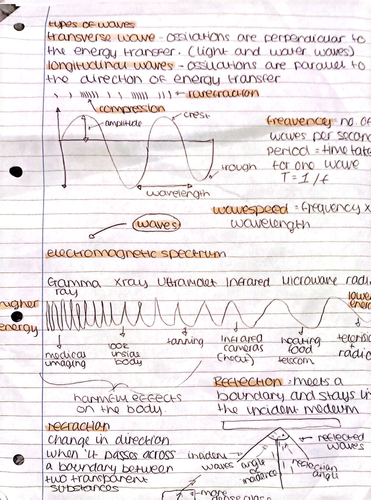 types of waves
transverse wave - ossilations are perpendicular to
the energy transfer. (light and water waves)
longitudinal waves - ossilations are parallel to
the direction of energy transfer
rarefraction
compression
amplitude
crest
trough
wavelength
frequency = no. of
waves per second
Period = time
for one wave
T = 1/f
wavespeed = frequency x
wavelength
waves
electromagnetic spectrum
Gamma xray Ultraviolet Infrared Microware radi
ray
higher
energy
lower
medical
imaging
look
inside
body
tanning
infrared
cameras
(heat)
heating
food
telecom
radio
harmful effects
on the body
Reflection = meets a
boundary and stays in
the incident medium
refraction
change in direction
when it passes across
a boundary between
two transparent
substances
incident
waves
angle
of
incidence
reflected
waves
reflection
angle
more